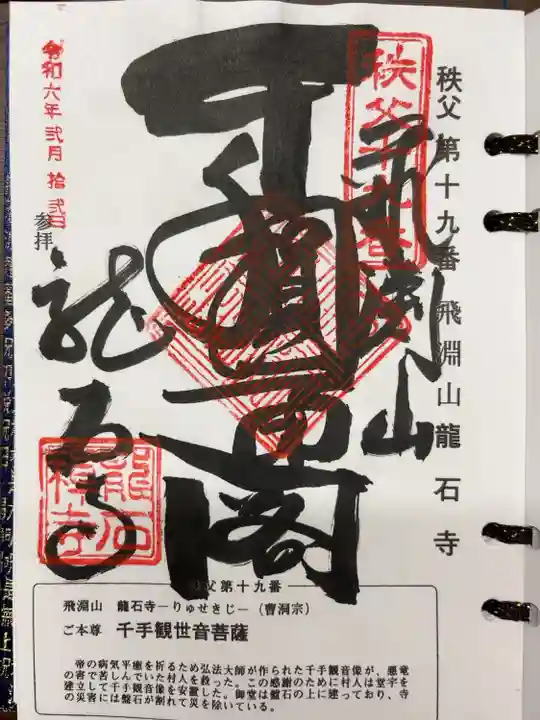 秩父 第十九番 飛淵山 龍石寺
秩父十九番
飛淵山
千手大悲閣
龍石寺
令和六年 弐月 拾弐日
参拝
龍石禅寺
父第十九番
飛淵山 龍石寺―りゅせきじ―(曹洞宗)
ご本尊 千手観世音菩薩
帝の病気平癒を祈るため弘法大師が作られた千手観音像が、悪竜
の害で苦しんでいた村人を救った。この感謝のために村人は堂宇を
建立して千手観音像を安置した。御堂は盤石の上に建っており、寺
の災害には盤石が割れて災を除いている。